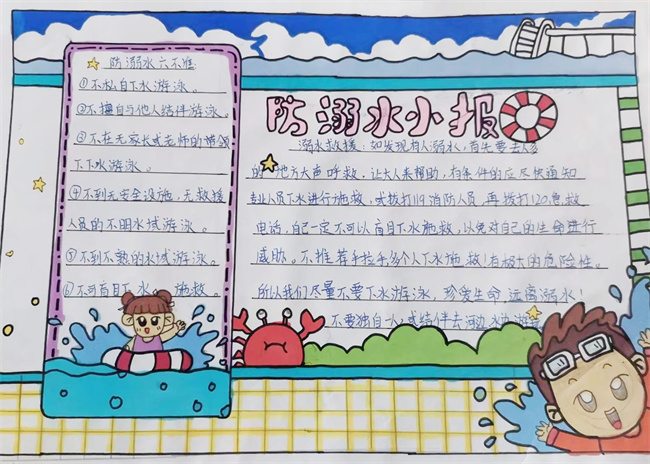 防溺水六不准:
①不私自下水游泳。
②不擅自与他人结伴游泳。
③不在无家长或老师的带领
下下水游泳。
④不到无安全设施,无救援
人员的不明水域游泳。
⑤不到不熟的水域游泳。
⑥不可盲目下水 施救。
防溺水小报
溺水救援:如发现有人溺水,首先要去人多
的 地方大声呼救,让大人来帮助,有条件的应尽快通知
专业人员下水进行施救,或拨打119消防人员,再拨打120急救
电话,自己一定不可以盲目下水施救,以免对自己的生命进行
威胁。不推荐手拉手多个人下水施救!有极大的危险性。
所以我们尽量不要下水游泳,珍爱生命,远离溺水!
不要独自一人,或结伴去河边